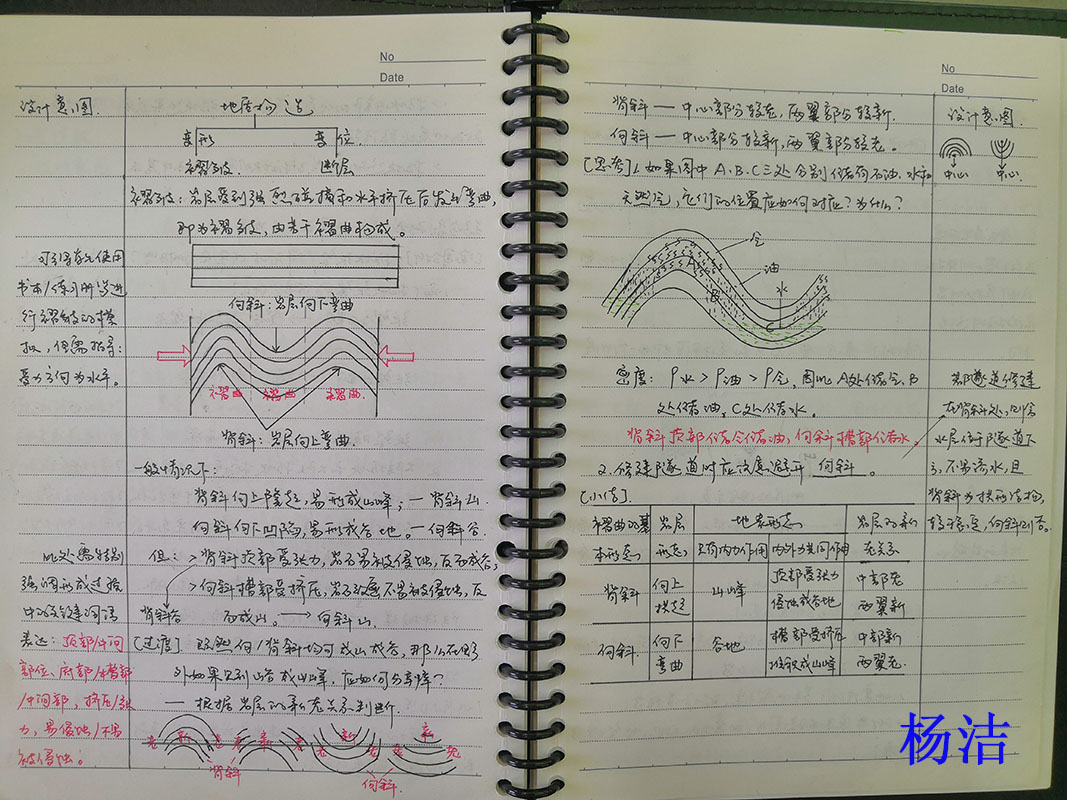 No
Date
设计意图
地质构造
变形 变位
褶皱 断层
褶皱：岩层受到强烈碰撞和水平挤压后发生弯曲，
即为褶皱，由若干褶曲构成。
可引导学生使用
书本/练习册等进
行褶皱的模
拟，但需指导：
受力方向为水平。
向斜：岩层向下弯曲
褶曲 褶曲 褶曲
背斜：岩层向上弯曲
一般情况下：
背斜向上隆起，易形成山峰；—背斜山
向斜向下凹陷，易形成谷地。—向斜谷
此处需特别
强调形成过程
中的关键词语
表达：顶部/中间
部位、底部/槽部
/中间部，挤压/张
力，易侵蚀/不易
被侵蚀。
但：>背斜顶部受张力，岩石易被侵蚀，反而成谷；
背斜谷
>向斜槽部受挤压，岩石致密不易被侵蚀，反
而成山。→向斜山。
[过渡] 既然向/背斜均可成山成谷，那么在野
外如果只到山谷或山峰，应如何分辨？
—根据岩层的新老关系判断.
老 新 老 老 新 老 老 新 老 新 老
背斜 向斜.
No
Date
背斜—中心部分较老，两翼部分较新.
向斜—中心部分较新，两翼部分较老。
设计意图.
中心 中心.
[思考]1.如果图中A、B、C三处分别储有石油、水和
天然气，它们的位置应如何对应？为什么？
气
油
水
A
B
C
密度：ρ水>ρ油>ρ气，因此A处储气、B
处储油，C处储水。
背斜顶部储气储油，向斜槽部储水。
2.修建隧道时应该避开 向斜 。
若隧道修建
在背斜处，则含
水层位于隧道下
方，不易渗水，且
背斜为拱形结构，
较稳定，向斜则否。
[小结].
褶曲的基本形态 岩层形态 地表形态 岩层的新老关系
只有内力作用 内外力共同作用
背斜 向上拱起 山峰 顶部受张力侵蚀成谷地 中部老两翼新
向斜. 向下弯曲 谷地 槽部受挤压 成山峰 中部新两翼老.
杨洁